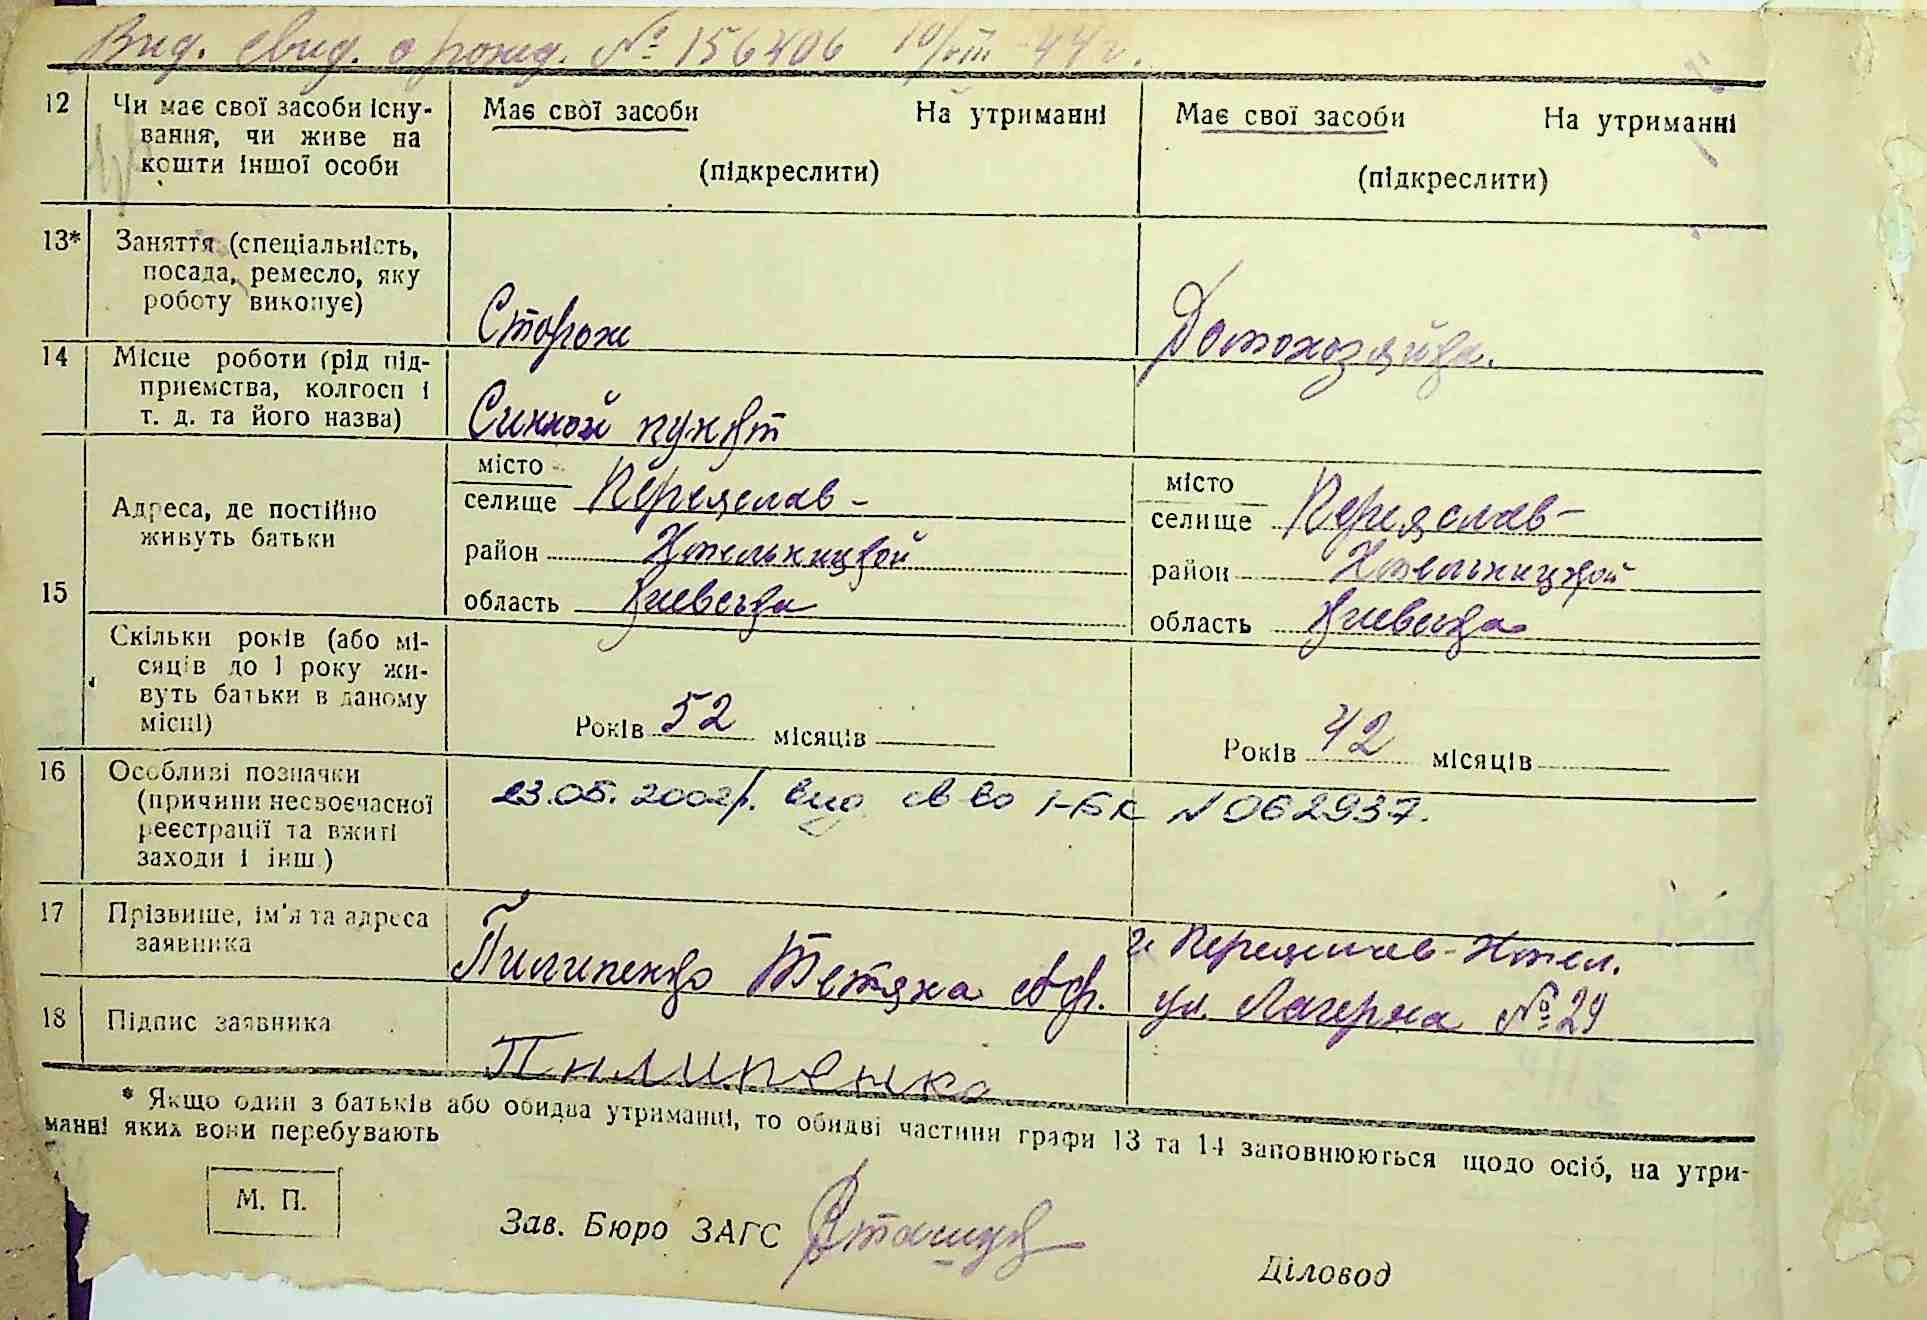 Вид. свид. о рожд. № 156406 10/VIII 44 г.
12 Чи має свої засоби існу-
вання, чи живе на
кошти іншої особи
Має свої засоби На утриманні
(підкреслити)
Має свої засоби На утриманні
(підкреслити)
13* Заняття (спеціальність,
посада, ремесло, яку
роботу виконує)
Сторож
Домохозяйка.
14 Місце роботи (рід під-
приємства, колгосп і
т. д. та його назва)
Синной пункт
15 Адреса, де постійно
живуть батьки
місто
селище Переяслав-
район Хмельницкой
область Киевська
місто
селище Переяслав-
район Хмельницкой
область Киевська
Скільки років (або мі-
сяців до 1 року жи-
вуть батьки в даному
місці)
Років 52 місяців
Років 42 місяців
16 Особливі позначки
(причини несвоєчасної
реєстрації та вжиті
заходи і інш.)
23.05.2002р. вид. св-во І-БК № 062937.
17 Прізвище, ім'я та адреса
заявника
Пилипенко Тетяна Аф.
г. Переяслав-Хмел.
ул. Лагерна № 29
18 Підпис заявника
Пилипенко
* Якщо один з батьків або обидва утриманці, то обидві частини графи 13 та 14 заповнюються щодо осіб, на утри-
манні яких вони перебувають
М. П.
Зав. Бюро ЗАГС
Діловод